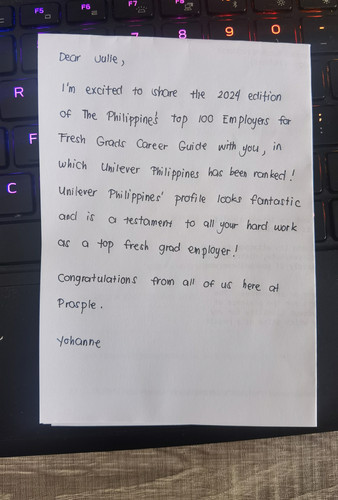 F5
F6
F7
F8
7
8
9
0
-
R
F
C
Dear Jalle,
I'm excited to share the 2024 edition
of The Philippines' top 100 Employers for
Fresh Grads Career Guide with you, in
which Unilever Philippines has been ranked!
Unilever Philippines' profile looks fantastic
and is a testament to all your hard work
as a top fresh grad employer!
Congratulations from all of us here at
Prosple.
Yohanne